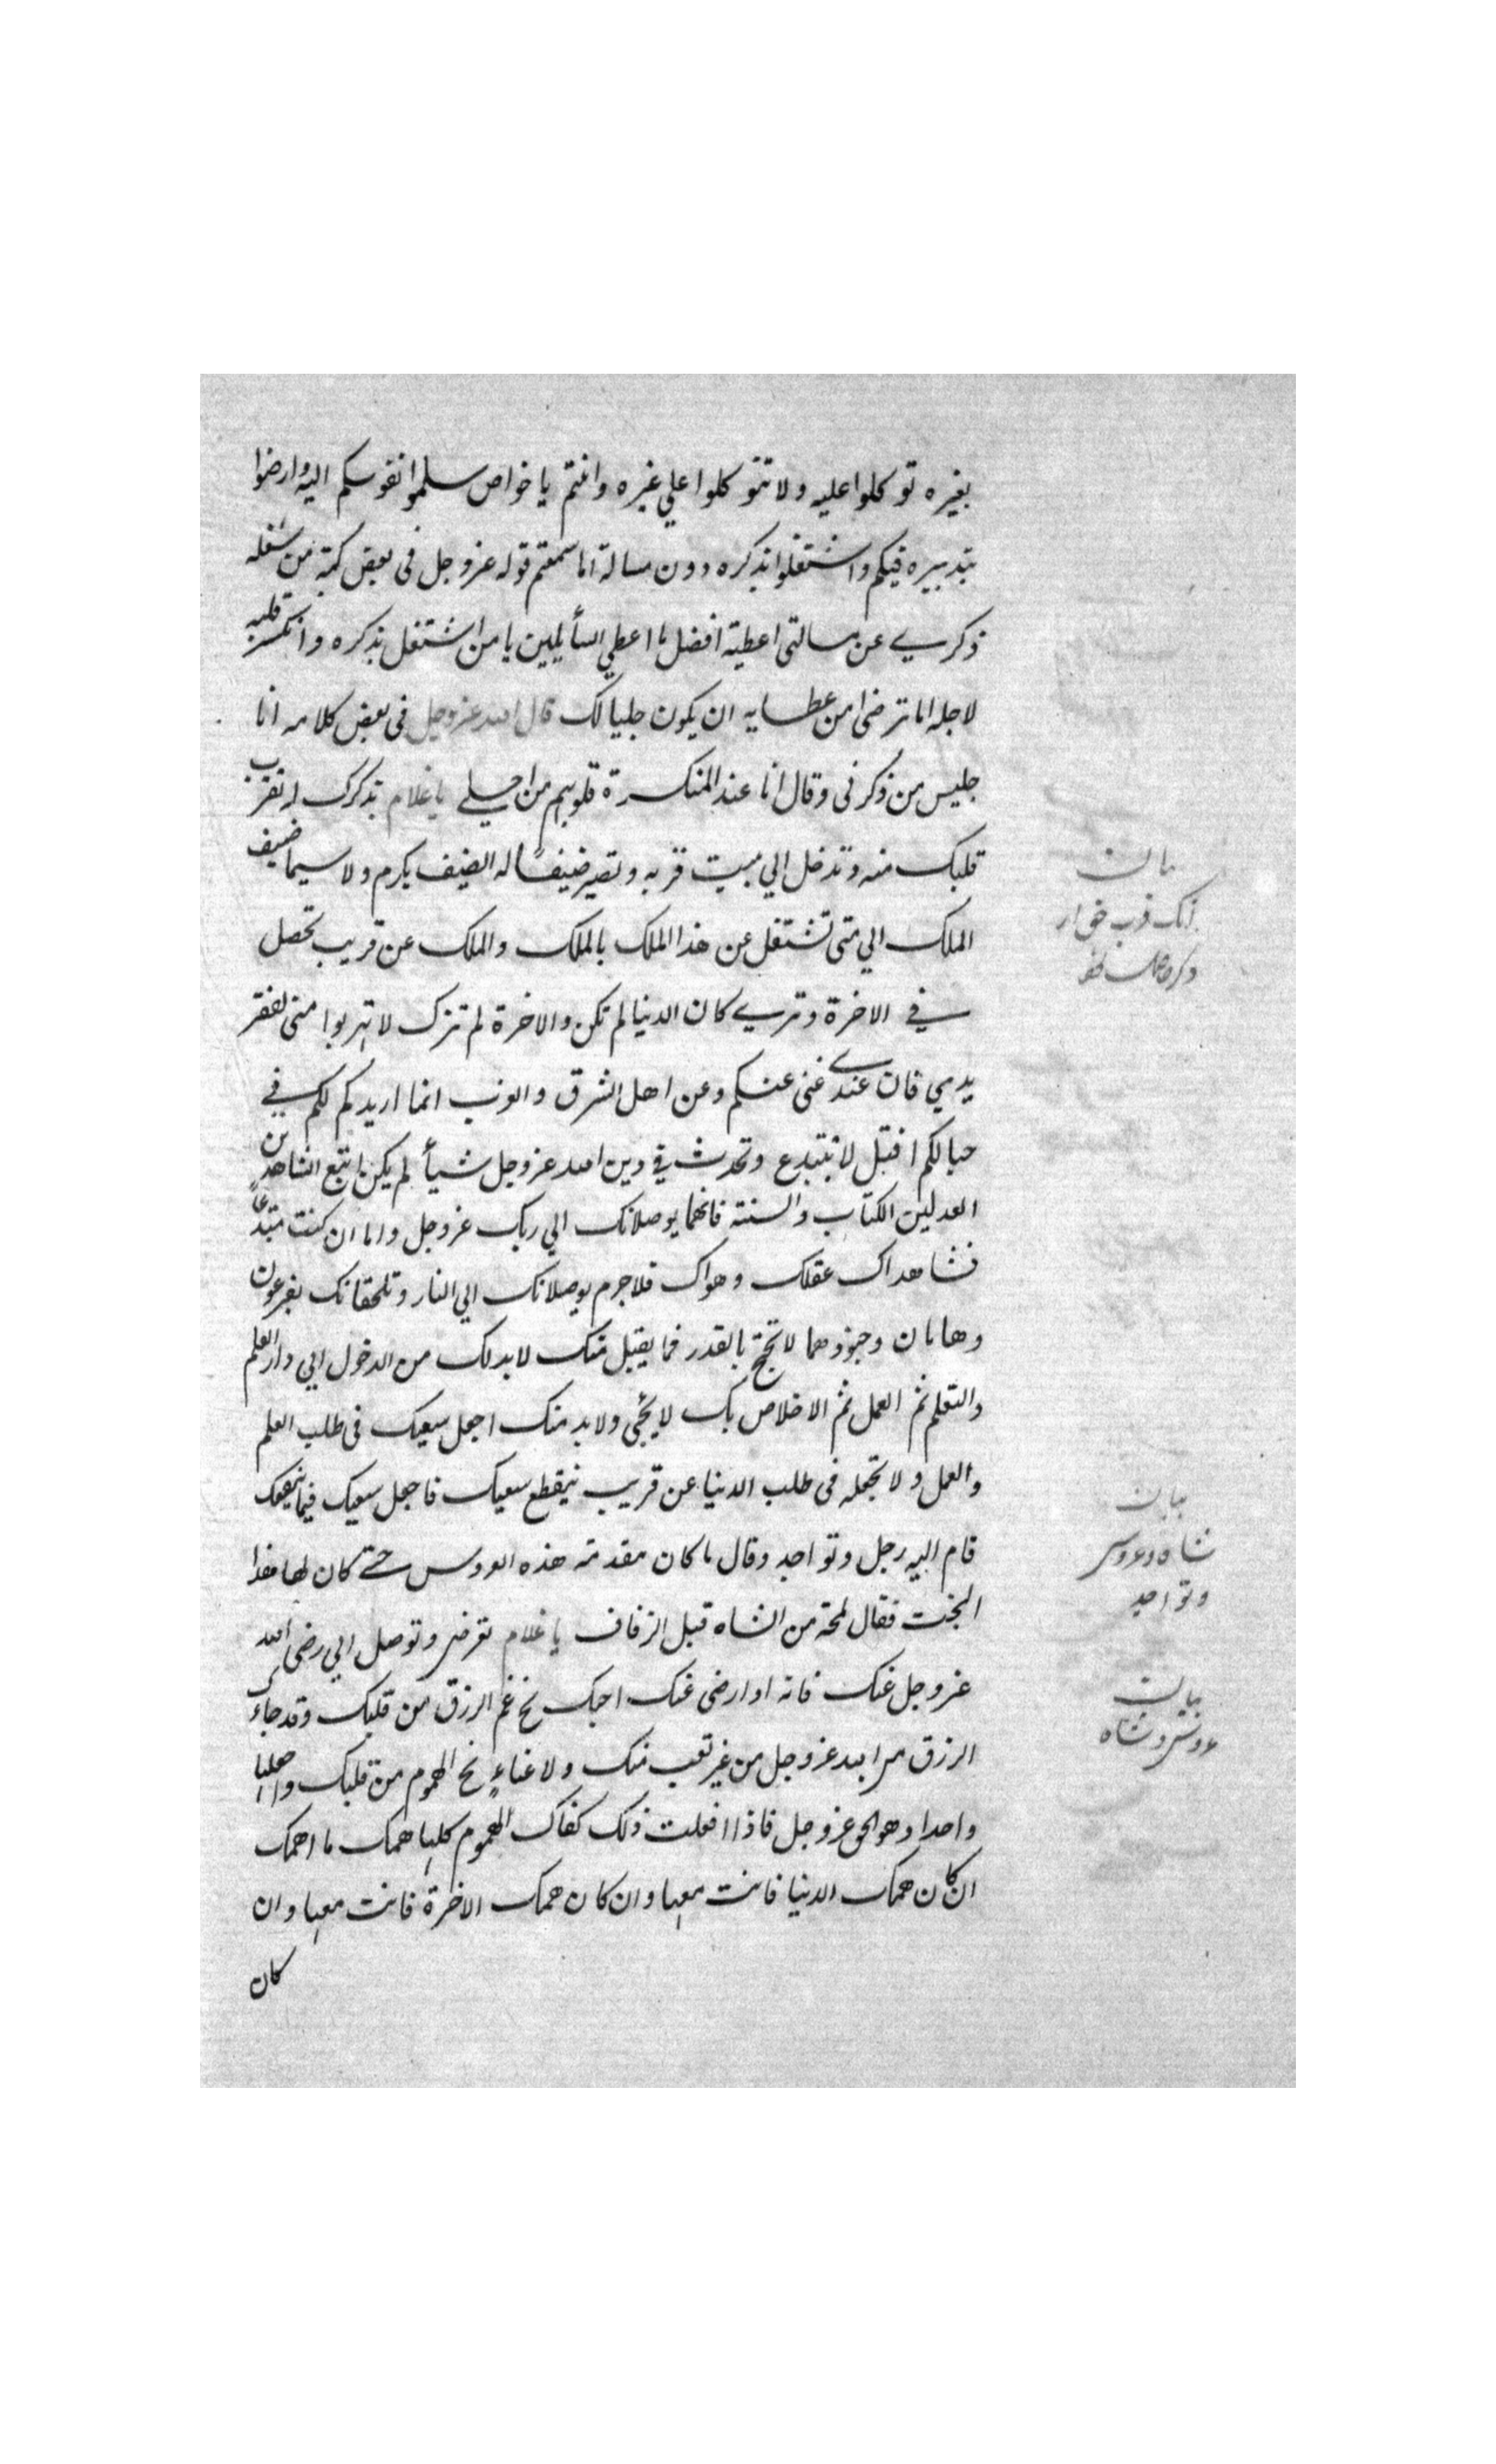 بغيره توكلوا عليه ولا تتوكلوا علي غيره وانتم يا خواص سلموا نفوسكم اليه وارضوا
بتدبيره فيكم واشتغلوا بذكره دون مسالة اما سمعتم قوله عزوجل فى بعض كتبه من شغله
ذكرى عن مسالتى اعطيته افضل ما اعطي السأيلين يا من اشتغل بذكره وانكسر قلبه
لاجله اما ترضى من عطايه ان يكون جليسا لك قال الله عزوجل فى بعض كلامه انا
جليس من ذكرنى وقال انا عند المنكسرة قلوبهم من اجلى يا غلام بذكرك له تقرب
قلبك منه وتدخل الي بيت قربه وتصير ضيفا له الضيف يكرم ولا سيما ضيف
الملك الي متى تشتغل عن هذا الملك بالملك والملك عن قريب تحصل
في الاخرة وترى كان الدنيا لم تكن والاخرة لم تزل لا تهربوا منى لفقر
يدي فان عندى غنى عنكم وعن اهل الشرق والغرب انما اريدكم لكم في
حبالكم افتل لا تبتدع وتحدث في دين الله عزوجل شيأ لم يكن اتبع الشاهدين
العدلين الكتاب والسنة فانهما يوصلانك الي ربك عزوجل واما ان كنت مبتدعا
فشاهداك عقلك وهواك فلا جرم يوصلانك الي النار وتلحقانك بفرعون
وهامان وجنودهما لا تحتج بالقدر فما يقبل منك لابد لك من الدخول الي دار العلم
والتعلم ثم العمل ثم الاخلاص بك لا يجى ولابد منك اجعل سعيك فى طلب العلم
والعمل ولا تجعله فى طلب الدنيا عن قريب ينقطع سعيك فاجعل سعيك فيما ينفعك
قام اليه رجل وتواجد وقال ما كان مقدمة هذه العروس حتى كان لها هذا
البخت فقال لمحة من الشاه قبل الزفاف يا غلام تعرض وتوصل الي رضى الله
عزوجل عنك فانه اذا رضى عنك احبك نح غم الرزق من قلبك وقد جاءك
الرزق من الله عزوجل من غير تعب منك ولا عناء نح الهموم من قلبك واجعلها
واحدا وهو الحق عزوجل فاذا فعلت ذلك كفاك الهموم كلها همك ما اهمك
ان كان همك الدنيا فانت معها وان كان همك الاخرة فانت معها وان
كان
بيان
بيان
شاه وعروس
وتواجد
بيان
عروس وشاه